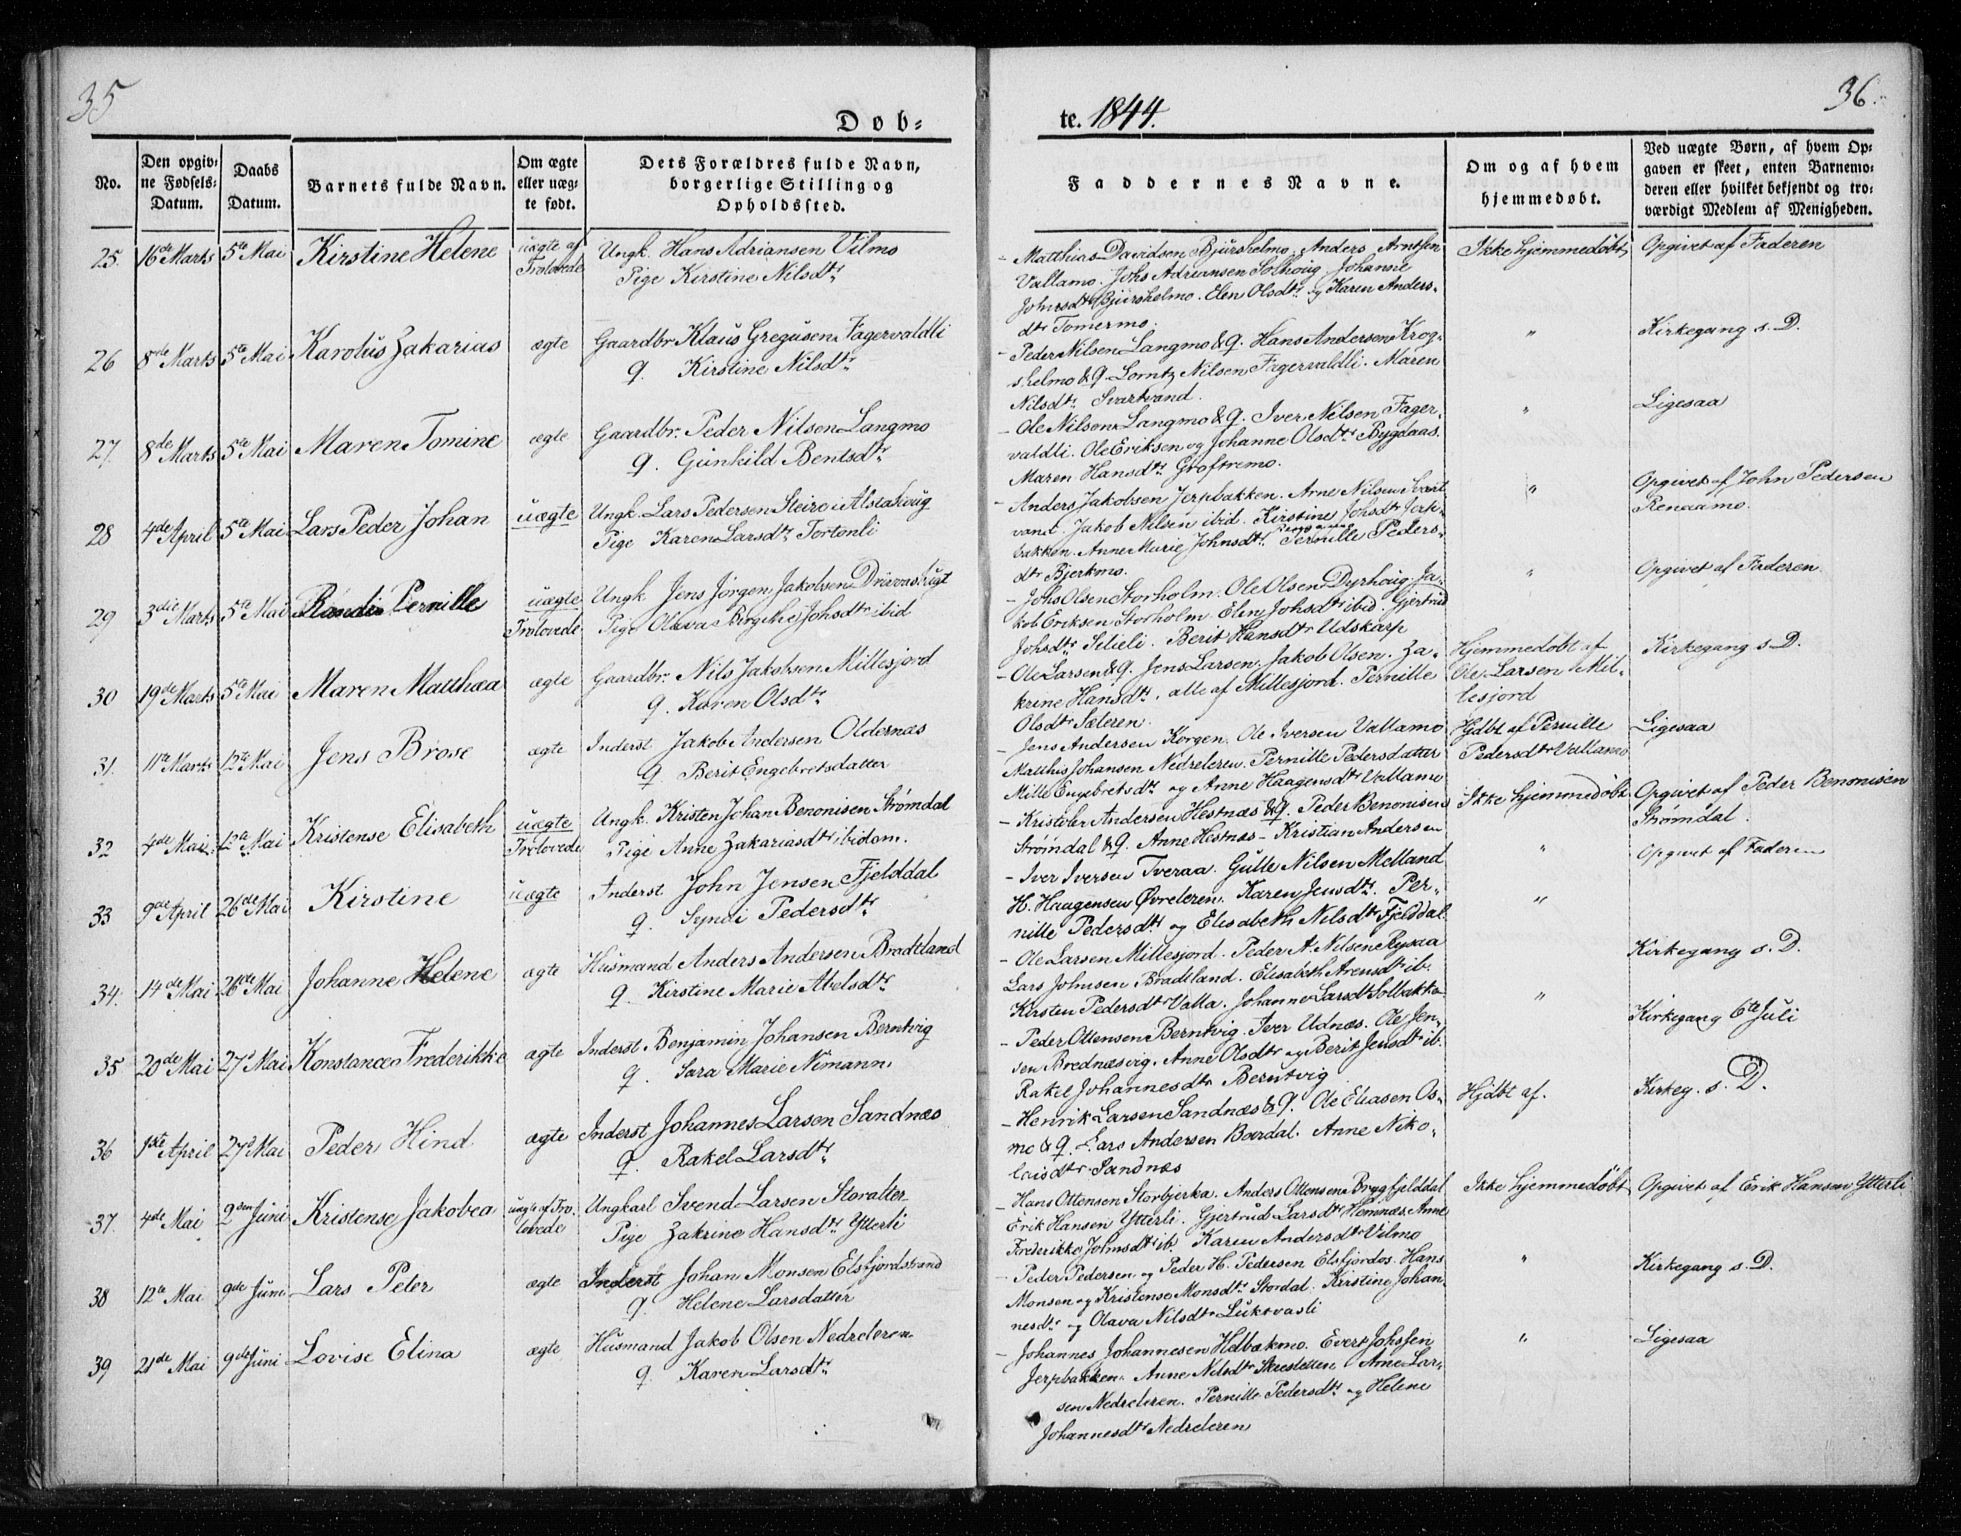 35
36.
Døb-
te. 1844.
No.
Den opgiv-
ne Fødsels-
Datum.
Daabs
Datum.
Barnets fulde Navn.
Om ægte
eller uæg-
te født.
Dets Forældres fulde Navn,
borgerlige Stilling og
Opholdssted.
Faddernes Navne.
Om og af hvem
hjemmedøbt.
Ved uægte Børn, af hvem Op-
gaven er skeet, enten Barnemo-
deren eller hvilket bekjendt og tro-
værdigt Medlem af Menigheden.
25. 16de Marts 5te Mai Kirstine Helene uægte af
Trolovede
Ungk. Hans Adriansen Vilmo
Pige Kirstine Nilsdtr
- Matthias Davidsen Bjurshelmo. Anders Arntsen
Vallamo. Johs Adriansen Solhoug. Johanne
Johnsdtr Bjurshelmo. Elen Olsdtr og Karen Anders-
dtr Tomermo.
Ikke hjemmedøbt
Opgivet af Faderen
26 8de Marts 5te Mai Karolus Zakarias ægte
Gaardbr Klaus Gregusen Fagervaldli
q. Kirstine Nilsdtr
- Peder Nilsen Langmo & q. Hans Andersen Krog-
shelmo & q. Lorntz Nilsen Fagervaldli. Maren
Nilsdtr Svartvand.
"
Kirkegang s. D.
27. 8de Marts 5te Mai Maren Tomine ægte
Gaardbr. Peder Nilsen Langmo
q. Gunhild Bentsdtr
- Ole Nilsen Langmo & q. Iver Nilsen Fager-
valdli. Ole Eriksen og Johanne Olsdtr Bygdaas.
Maren Hansdtr Groftremo.
"
Ligesaa
28 4de April 5te Mai Lars Peder Johan uægte
Ungk. Lars Pedersen Steiro i Alstahoug
Pige Karen Larsdtr Tortenli
- Anders Jakobsen Jerpbakken. Arne Nilsen Svart-
vand. Jakob Nilsen ibid. Kirstine Johsdtr Jerp-
bakken. Anne Marie Johnsdtr Pernille Peders-
dtr Bjerkmo.
"
Opgivet af John Pedersen
Renaamo.
29 3die Marts 5te Mai Pernille uægte
Trolovede
Ungk Jens Jørgen Jakobsen
Pige Olava Birgithe Johsdtr ibid
- Johs Olsen Storholm. Ole Olsen Dyrhoug. Ja-
kob Eriksen Storholm Elen Johsdtr ibid. Gjertrud
Johsdtr Selieli. Berit Hansdtr Udskarp
"
Opgivet af Faderen.
30 19de Marts 5te Mai Maren Matthæa ægte
Gaardbr. Nils Jakobsen Millesjord
q. Karen Olsdtr
- Ole Larsen & q. Jens Larsen. Jakob Olsen. Za-
krine Hansdtr, alle af Millesjord. Pernille
Olsdtr Sæteren.
Hjemmedøbt af
Ole Larsen Mil-
lesjord
Kirkegang s. D.
31. 11te Marts 12te Mai Jens Brose ægte
Inderst Jakob Andersen Oldernæs
q Berit Engebretsdatter
- Jens Andersen Korgen. Ole Iversen Vallamo
Matthis Johansen Nedreleren. Pernille Pedersdatter
Mille Engebretsdtr og Anne Haagensdtr Vallamo
Hjdbt af Pernille
Pedersdtr Vallamo
Ligesaa
32 4de Mai 12te Mai Kristense Elisabeth uægte
Trolovede
Ungk. Kristen Johan Benonisen Strømdal
Pige Anne Zakariasdtr ibidem.
- Kristoler Andersen Hestnæs & q. Peder Benonisen
Strømdal & q. Anne Hestnæs - Kristian Andersen
Ikke hjemmedøbt
Opgivet af Peder Benonisen
Strømdal.
33 9de April 26de Mai Kirstine uægte
Inderst John Jensen Fjelddal
q. Synöi Pedersdtr
- Iver Iversen Tveraa. Gulle Nilsen Melland
H. Haagensen Øvreleren. Karen Jensdtr. Per-
nille Pedersdtr og Elisabeth Nilsdtr Fjelddal.
"
Opgivet af Faderen
34. 14de Mai 26de Mai Johanne Helene ægte
Husmand Anders Andersen Bradtland
q. Kirstine Marie Abelsdtr
- Ole Larsen Millesjord. Peder A. Nilsen Rysaa
Lars Johnsen Bradtland. Elisabeth Arensdtr ib.
Kirsten Pedersdtr Valla. Johanne Larsdtr Solbakken
"
Kirkegang s. D.
35 20de Mai 27d Mai Konstance Frederikke ægte
Inderst Benjamin Johansen Berntvig
q. Sara Marie Nimann.
- Peder Ottensen Berntvig. Iver Udnæs. Ole Jen-
sen Brednæsvig. Anne Olsdtr og Berit Jensdtr ib.
Rakel Johannesdtr Berntvig
"
Kirkegang 6te Juli
36 1ste April 27d Mai Peder Hind ægte
Inderst Johannes Larsen Sandnæs
q. Rakel Larsdtr
- Henrik Larsen Sandnæs & q. Ole Eliasen Os-
mo & q. Lars Andersen Bærdal. Anne Niko-
laisdtr Sandnæs
Hjdbt af.
Kirkeg. s. D.
37. 4de Mai 2den Juni Kristense Jakobea uægte af Tro-
lovede
Ungkarl Svend Larsen Storalter
Pige Zakrine Hansdtr Ytterli
- Hans Ottensen Storbjerka. Anders Ottensen Brygfjelddal
Erik Hansen Ytterli. Gjertrud Larsdtr Hemnæs. Anne
Frederikke Johnsdtr ib. Karen Andersdtr Vilmo
Ikke hjemmedøbt
Opgivet af Erik Hansen Ytterli
38 12te Mai 9de Juni Lars Peter ægte
Inderst Johan Monsen Elsfjordstrand
q. Helene Larsdatter
- Peder Pedersen og Peder H. Pedersen Elsfjordos. Hans
Monsen og Kristense Monsdtr Stordal. Kirstine Johan-
nesdtr og Olava Nilsdtr Luktvasli
"
Kirkegang s. D.
39 21de Mai 9de Juni Lovise Elina ægte
Husmand Jakob Olsen Nedreleren
q. Karen Larsdtr
- Johannes Johannesen Helbækmo. Evert Johssen
Jerpbakken. Anne Nilsdtr Arne Lar-
sen Nedreleren. Pernille Pedersdtr og Helene
Johannesdtr Nedreleren
"
Ligesaa